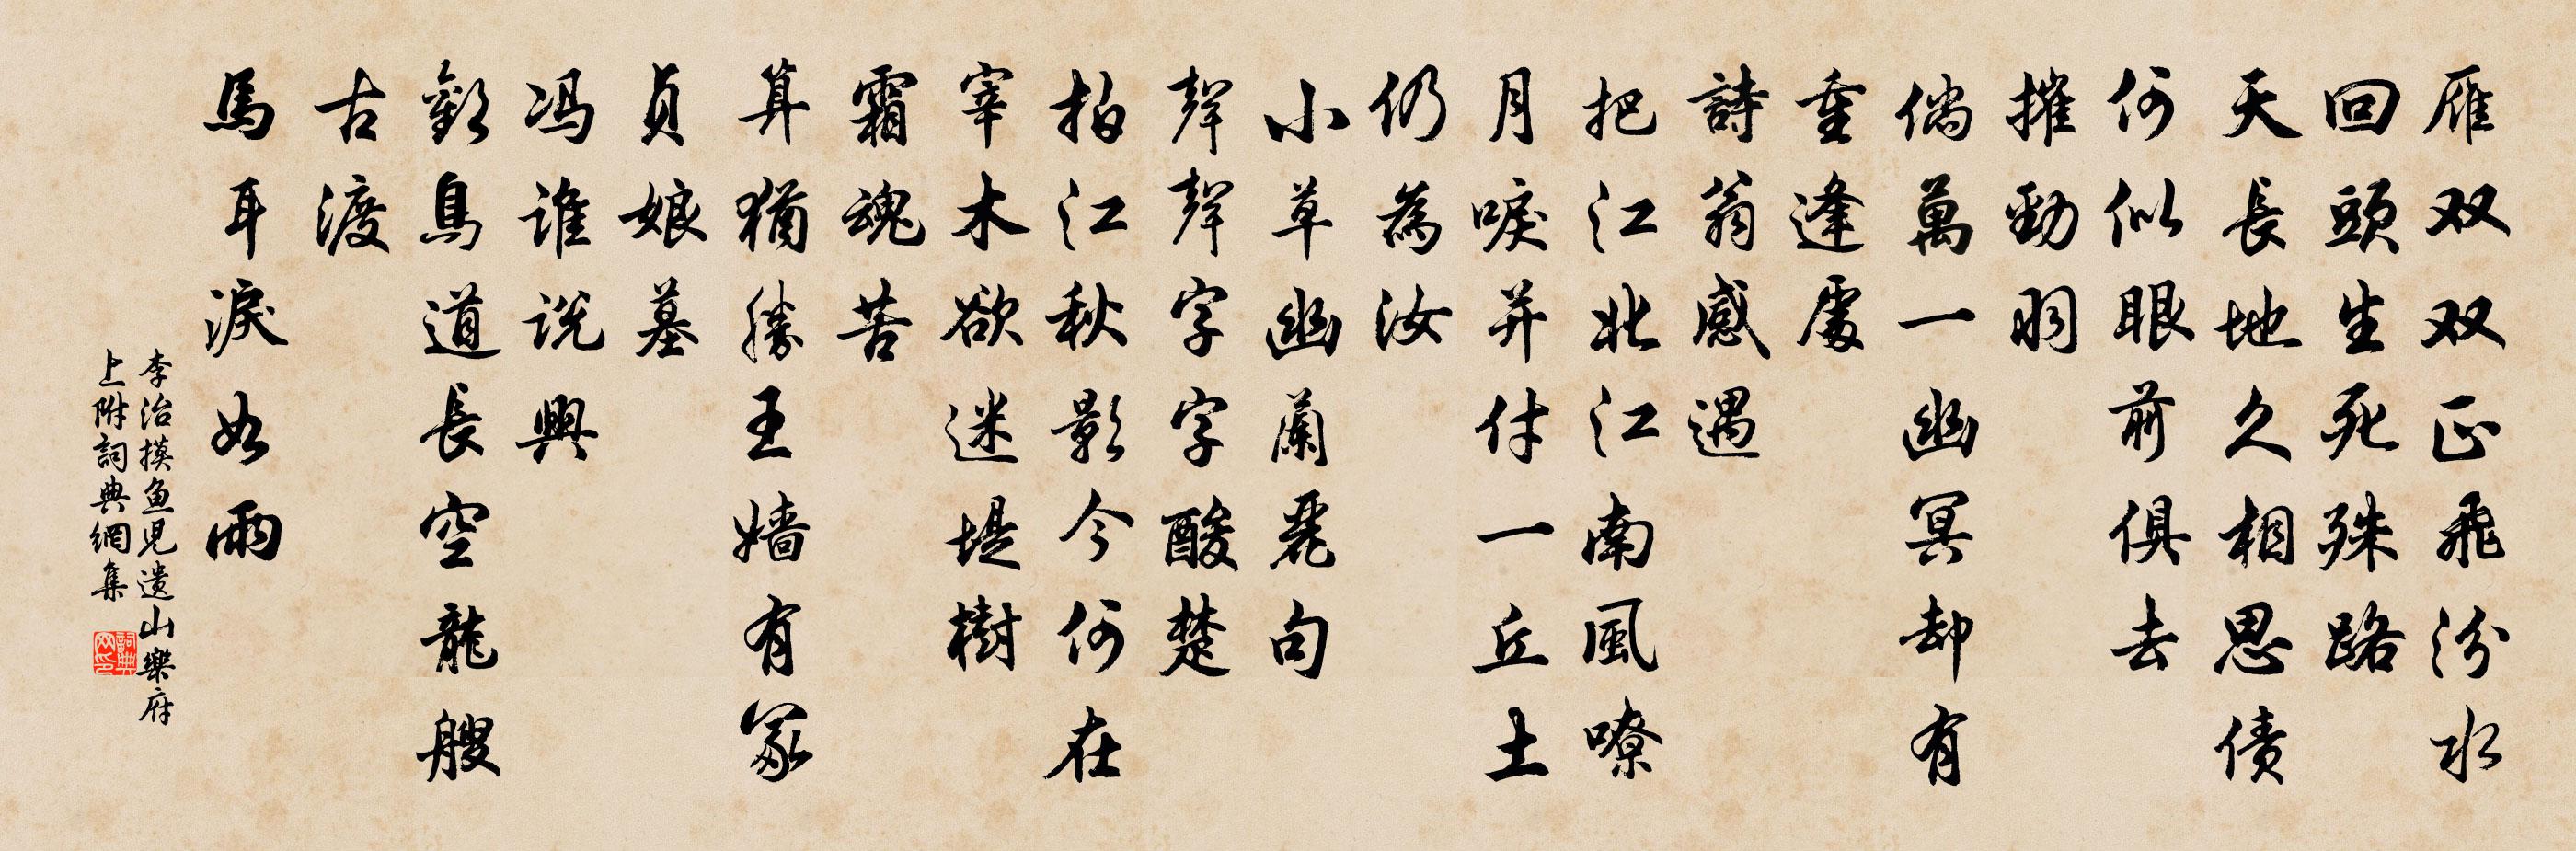 雁双双正飛汾水
回頭生死殊路
天長地久相思債
何似眼前俱去
摧勁羽
倘萬一幽冥却有
重逢處
詩翁感遇
把江北江南風嘹
月唳并付一丘土
仍為汝
小草幽蘭麗句
聲聲字字酸楚
拍江秋影今何在
宰木欲迷堤樹
霜魂苦
算猶勝王嬙有冢
貞娘墓
冯誰説興
歎鳥道長空龍艘
古渡
馬耳淚如雨
李治摸鱼児遗山樂府
上附詞典網集
詞典网印